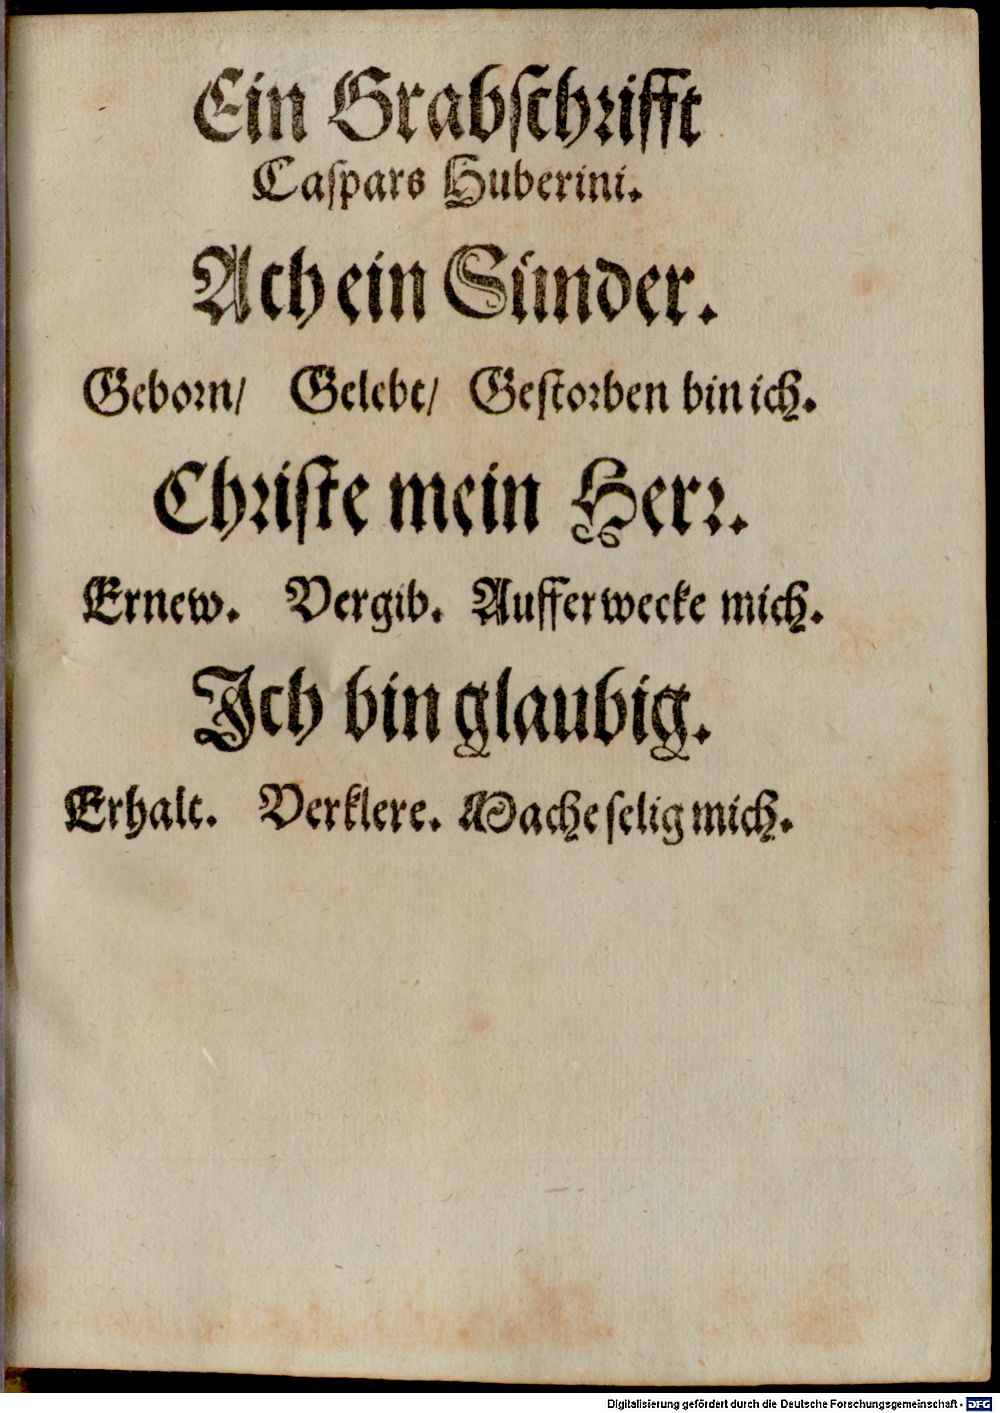 Ein Grabſchrifft
Caſpars Huberini.
Ach ein Sünder.
Geborn/ Gelebt/ Geſtorben bin ich.
Chriſte mein Herr.
Ernew. Vergib. Aufferwecke mich.
Ich bin glaubig.
Erhalt. Verklere. Mache ſelig mich.
Digitalisierung gefördert durch die Deutsche Forschungsgemeinschaft - DFG